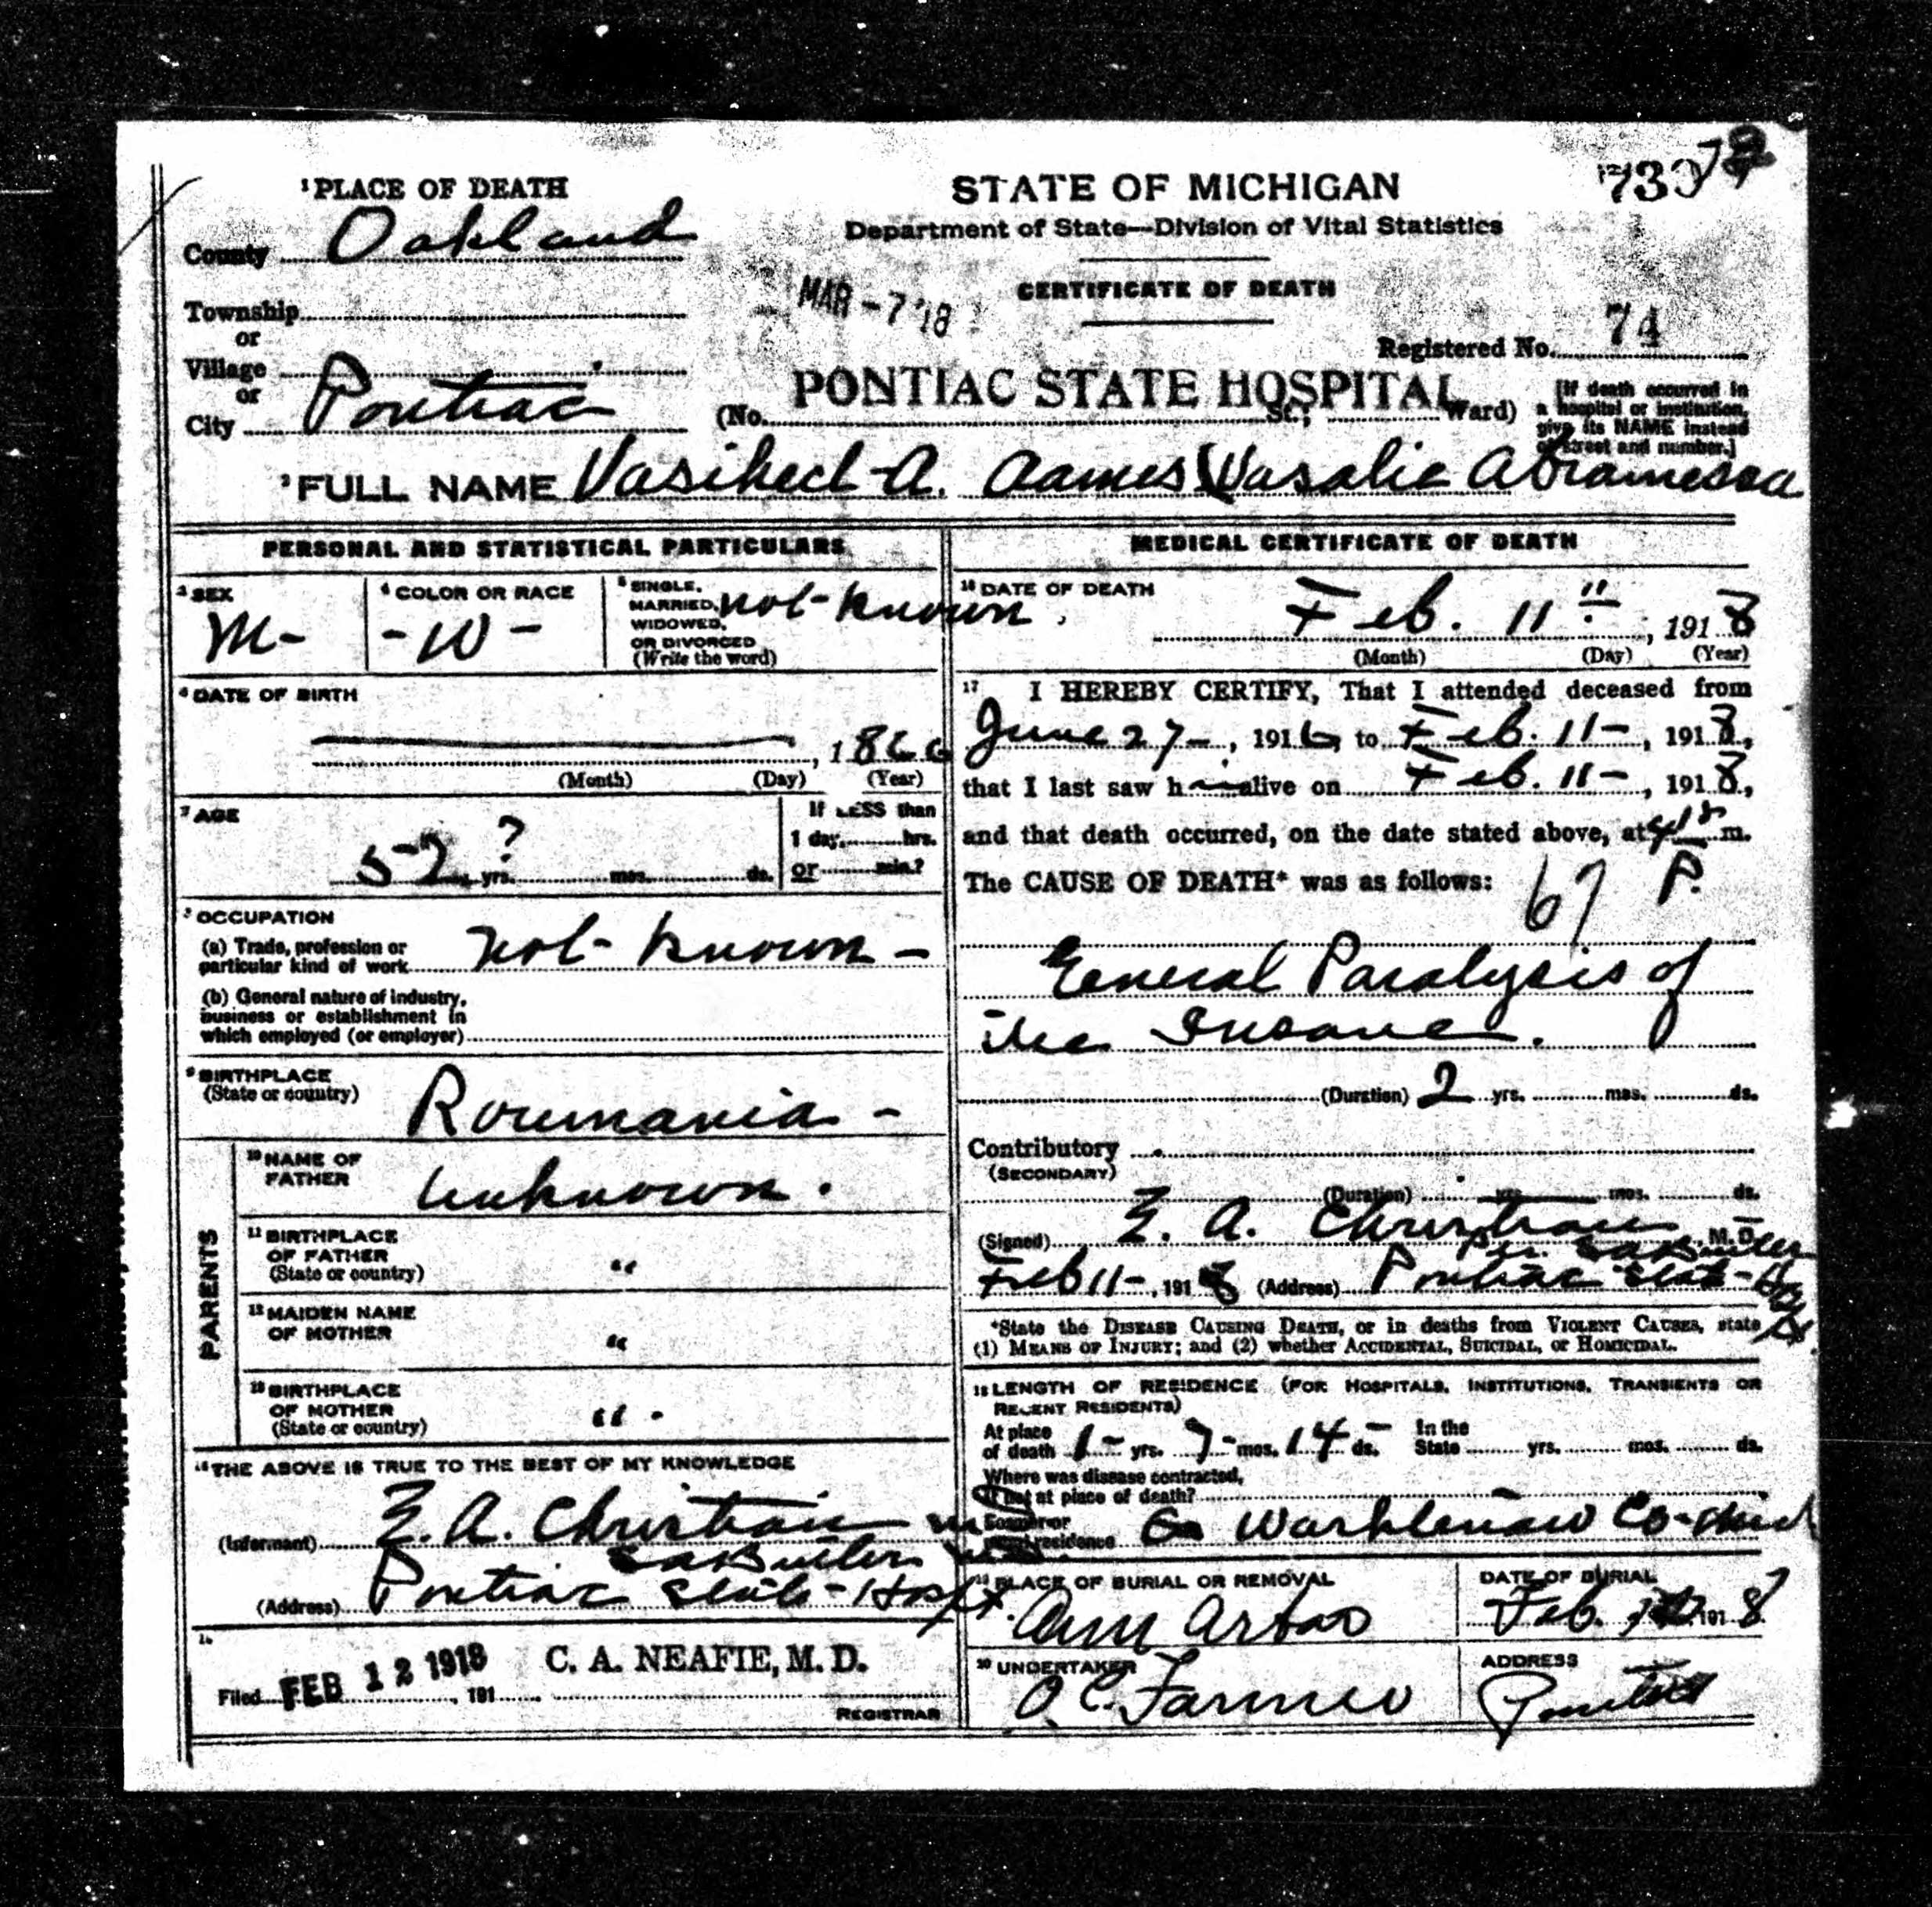 1 PLACE OF DEATH
County Oakland
Township
or
Village
or
City Pontiac
STATE OF MICHIGAN
Department of State—Division of Vital Statistics
CERTIFICATE OF DEATH
MAR - 7 '18
Registered No. 74
(No. PONTIAC STATE HOSPITAL St.; Ward)
[If death occurred in
a hospital or institution,
give its NAME instead
of street and number.]
2 FULL NAME A. Aames (Vasalie Abramessa
PERSONAL AND STATISTICAL PARTICULARS
3 SEX
M-
4 COLOR OR RACE
- W -
5 SINGLE,
MARRIED,
WIDOWED,
OR DIVORCED
(Write the word)
not-known
6 DATE OF BIRTH
, 1866
(Month) (Day) (Year)
7 AGE
52 ? yrs. mos. ds.
If LESS than
1 day, hrs.
or min.?
8 OCCUPATION
(a) Trade, profession or
particular kind of work not-known -
(b) General nature of industry,
business or establishment in
which employed (or employer)
9 BIRTHPLACE
(State or country)
Roumania -
PARENTS
10 NAME OF
FATHER
Unknown.
11 BIRTHPLACE
OF FATHER
(State or country)
"
12 MAIDEN NAME
OF MOTHER
"
13 BIRTHPLACE
OF MOTHER
(State or country)
" .
14 THE ABOVE IS TRUE TO THE BEST OF MY KNOWLEDGE
(Informant) E. A. Christian
(Address) Pontiac State-Hospt.
15
Filed FEB 12 1918, 191
C. A. NEAFIE, M. D.
REGISTRAR
MEDICAL CERTIFICATE OF DEATH
16 DATE OF DEATH
Feb. 11", 1918
(Month) (Day) (Year)
17 I HEREBY CERTIFY, That I attended deceased from
June 27-, 1916, to Feb. 11-, 1918,
that I last saw h alive on Feb. 11-, 1918,
and that death occurred, on the date stated above, at m.
P.
The CAUSE OF DEATH* was as follows:
67
General Paralysis of
the Insane.
(Duration) 2 yrs. mos. ds.
Contributory
(SECONDARY)
(Duration) yrs. mos. ds.
(Signed) E. A. Christian, M. D.
Feb 11-, 1918 (Address) Pontiac State-Hospt.
*State the DISEASE CAUSING DEATH, or in deaths from VIOLENT CAUSES, state
(1) MEANS OF INJURY; and (2) whether ACCIDENTAL, SUICIDAL, or HOMICIDAL.
18 LENGTH OF RESIDENCE (FOR HOSPITALS, INSTITUTIONS, TRANSIENTS OR
RECENT RESIDENTS)
At place
of death 1- yrs. 7- mos. 14- ds.
In the
State yrs. mos. ds.
Where was disease contracted,
If not at place of death?
Former or
usual residence Washtenaw Co-Mich
19 PLACE OF BURIAL OR REMOVAL
Ann Arbor
DATE OF BURIAL
Feb. 1918
20 UNDERTAKER
O. C. Farmer
ADDRESS
Pontiac